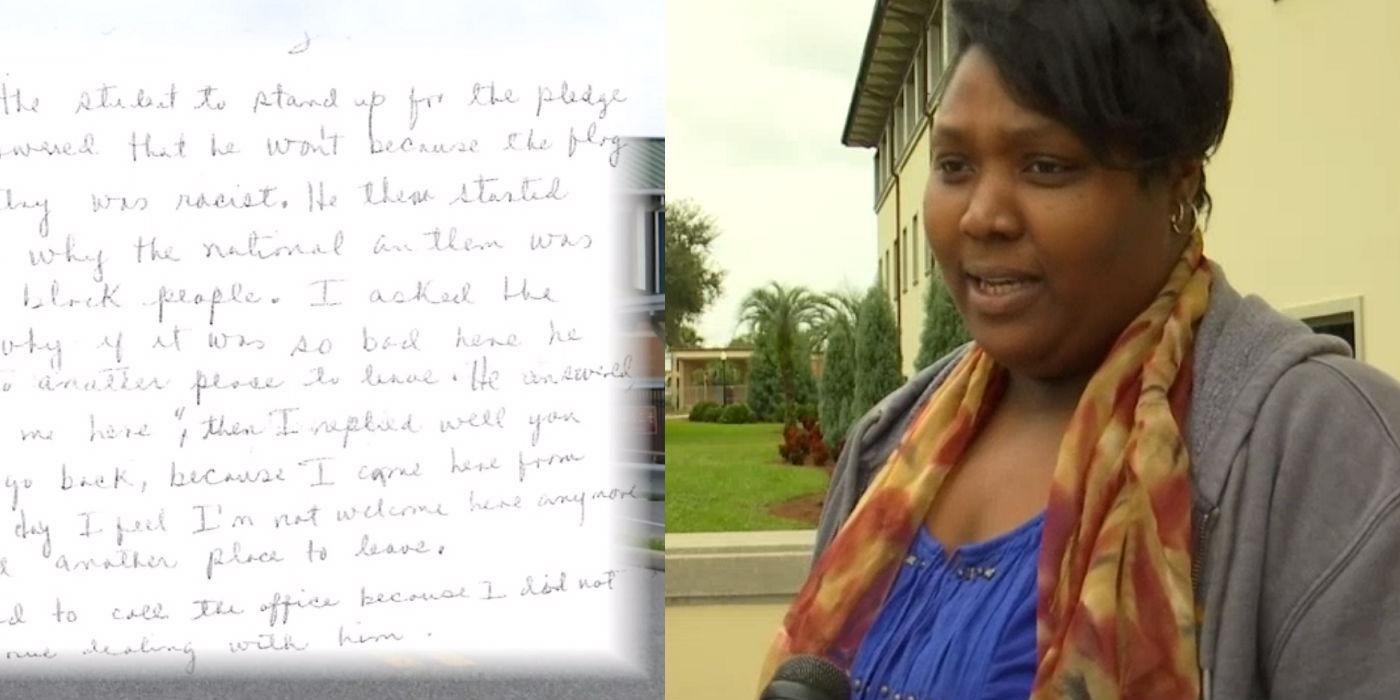 the student to stand up for the pledge
wered that he won't because the flag
was racist. He then started
why the national anthem was
black people. I asked the
why if it was so bad here he
another place to leave. He answered
me here", then I replied well you
go back, because I came here from
day I feel I'm not welcome here anymore
another place to leave.
to call the office because I did not
dealing with him.